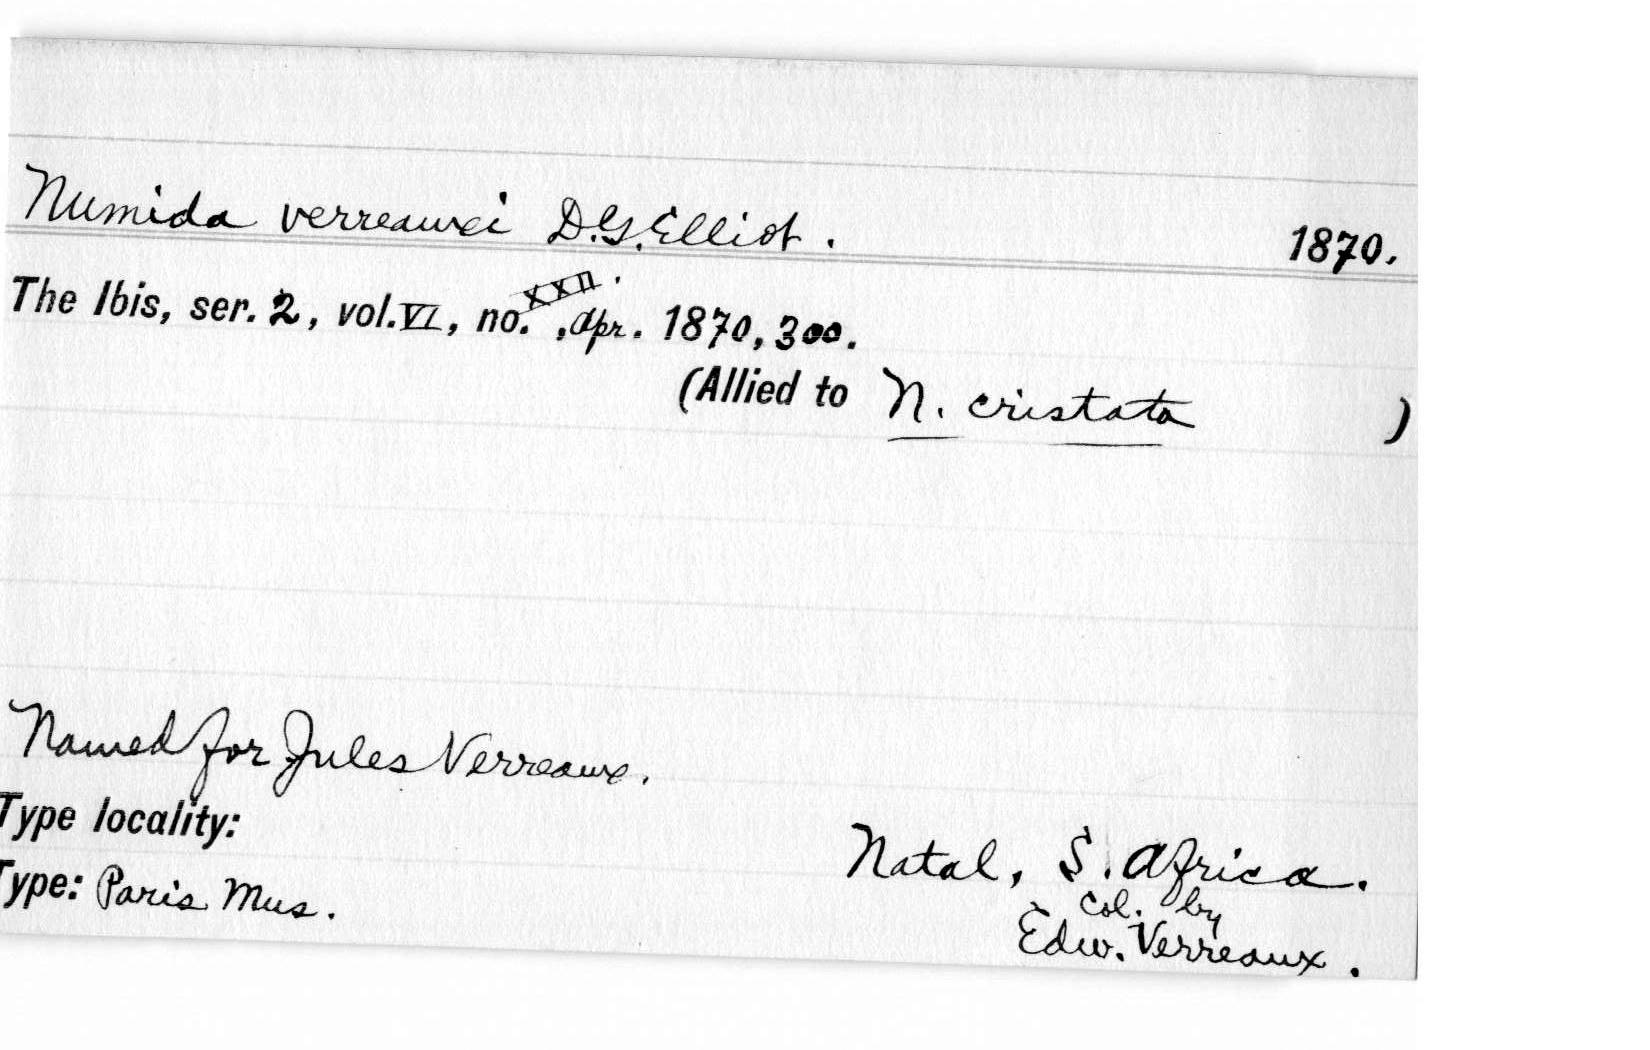 Numida verreauxi D.G. Elliot. 1870.
The Ibis, ser. 2, vol. VI, no. XXII., Apr. 1870, 300.
(Allied to N. cristata )
Named for Jules Verreaux.
Type locality:
Natal, S. Africa.
Type: Paris Mus.
Col. by
Edw. Verreaux.